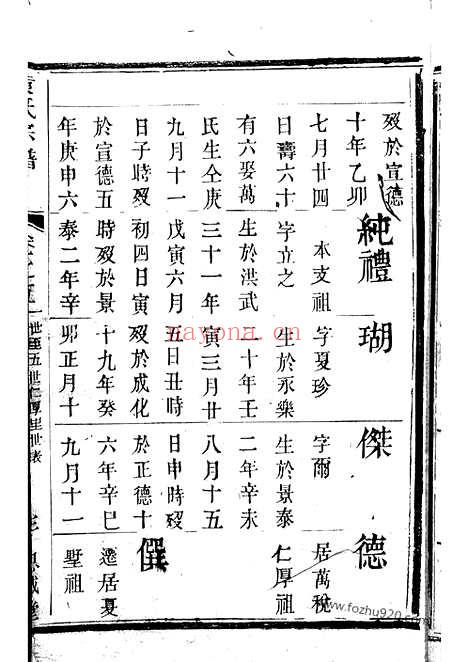 歿於宣德
十年乙卯
七月廿四
日壽六十
有六娶萬
氏生仝庚
九月十一
日子時歿
於宣德五
年庚申六
純禮
本支祖
字立之
生於洪武
三十一年
戊寅六月
初四日寅
時歿於景
泰二年辛
瑚
字夏珍
生於永樂
二十年壬
寅三月廿
五日丑時
歿於成化
十九年癸
卯正月十
傑
字爾
生於景泰
二年辛未
八月十五
日申時歿
於正德十
六年辛巳
九月十一
德
居萬稅
仁厚祖
僎
遷居夏
墅祖
袁氏宗譜
一世至五世仁厚里世表
nayona.cn
www.fozhu920.com